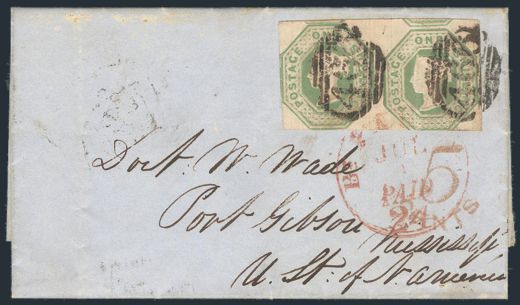 POSTAGE ONE
POSTAGE ONE
JUL
5
PAID
24
CENTS
Doct. W. Wade
Port Gibson
Mississipi
U. St. of N. America